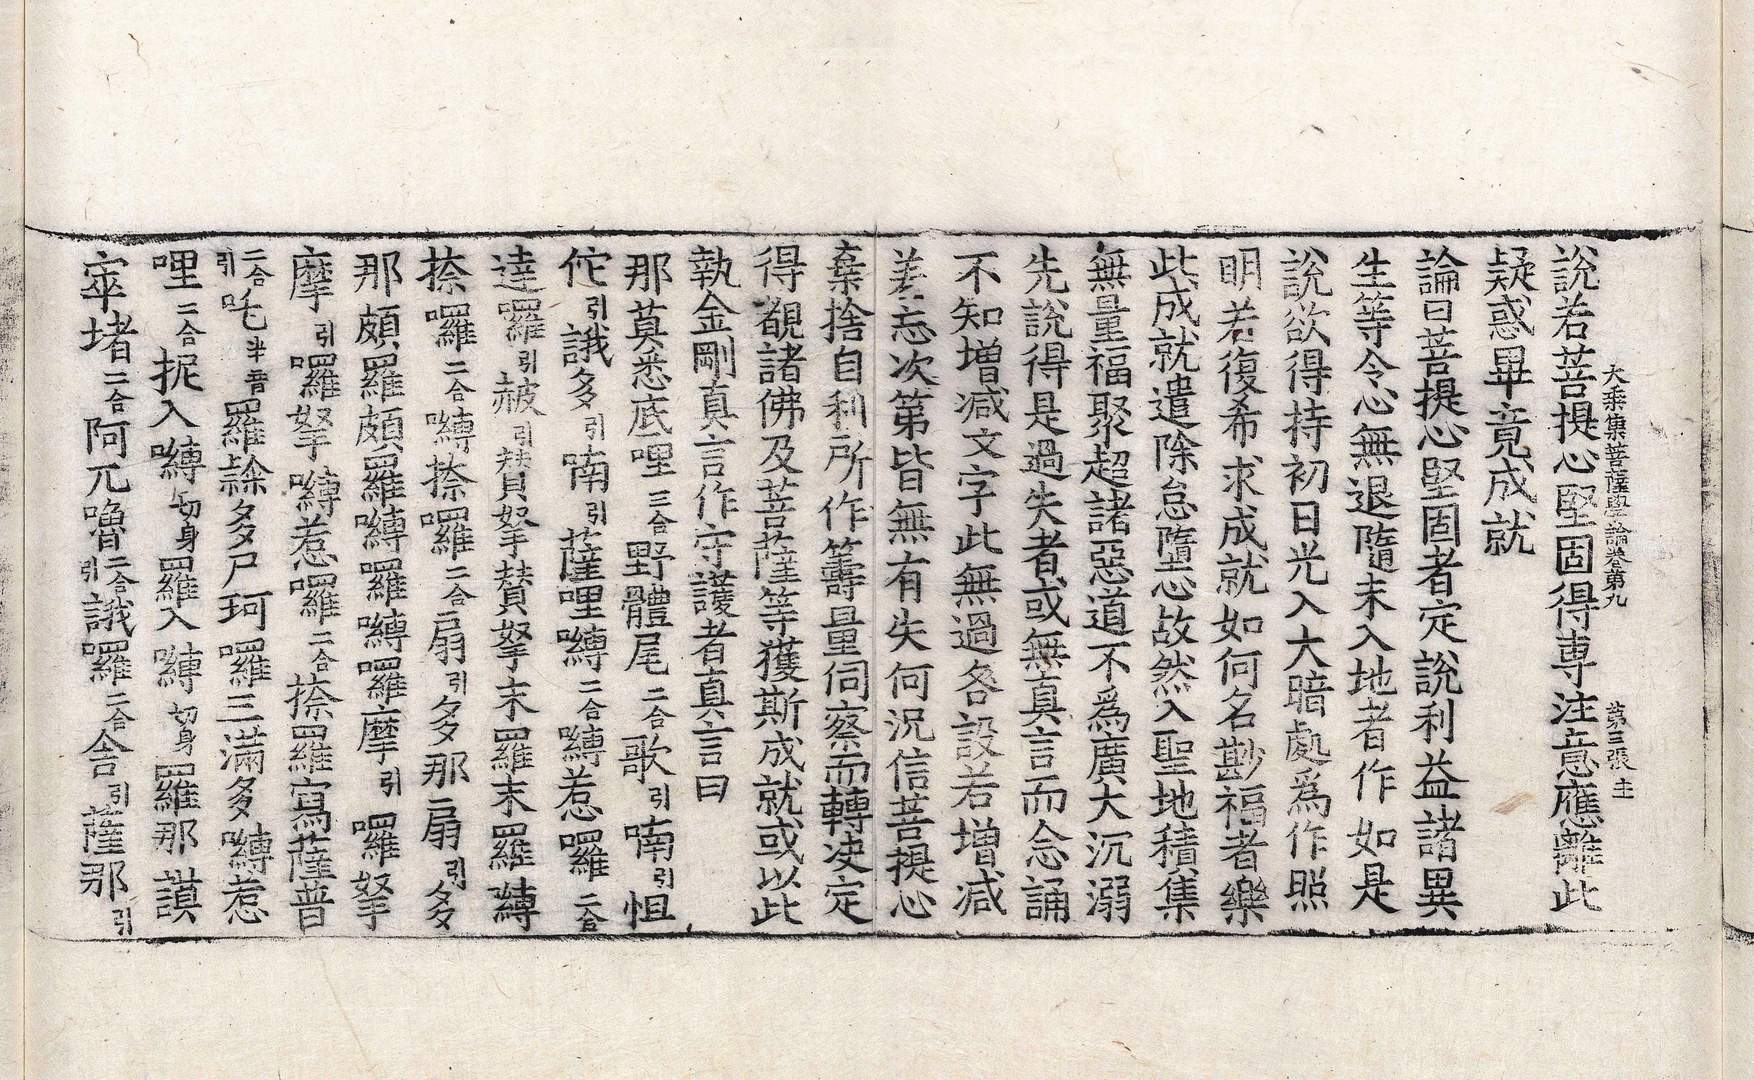 大乘集菩薩學論卷第九 第三張 主
說若菩提心堅固得専注意應離此
疑惑畢竟成就
論曰菩提心堅固者定說利益諸異
生等令心無退墮未入地者作如是
說欲得持初日光入大暗處爲作照
明若復希求成就如何名尠福者樂
此成就遣除怠墮志故然入聖地積集
無量福聚超諸惡道不爲廣大沉溺
先說得是過失者或無真言而念誦
不知増减文字此無過咎設若増减
差忘次第皆無有失何況信菩提心
棄捨自利所作籌量伺察而轉决定
得覩諸佛及菩薩等獲斯成就或以此
執金剛真言作守護者真言曰
那莫悉底哩三合野體尾二合歌引喃引怛
佗引誐多引喃引薩哩嚩二合嚩惹囉二合
達囉引赧引拔賛拏賛拏末囉末囉嚩
捺囉二合嚩捺囉二合扇引多那扇引多
那頗囉頗囉嚩囉嚩囉摩引囉拏
摩引囉拏嚩惹囉二合捺囉寫薩普
二合引吒半音囉祿多尸珂囉三滿多嚩惹
哩二合抳入嚩切身囉入嚩切身囉那謨
窣堵二合阿兀嚕二合引誐囉二合舍引薩那引